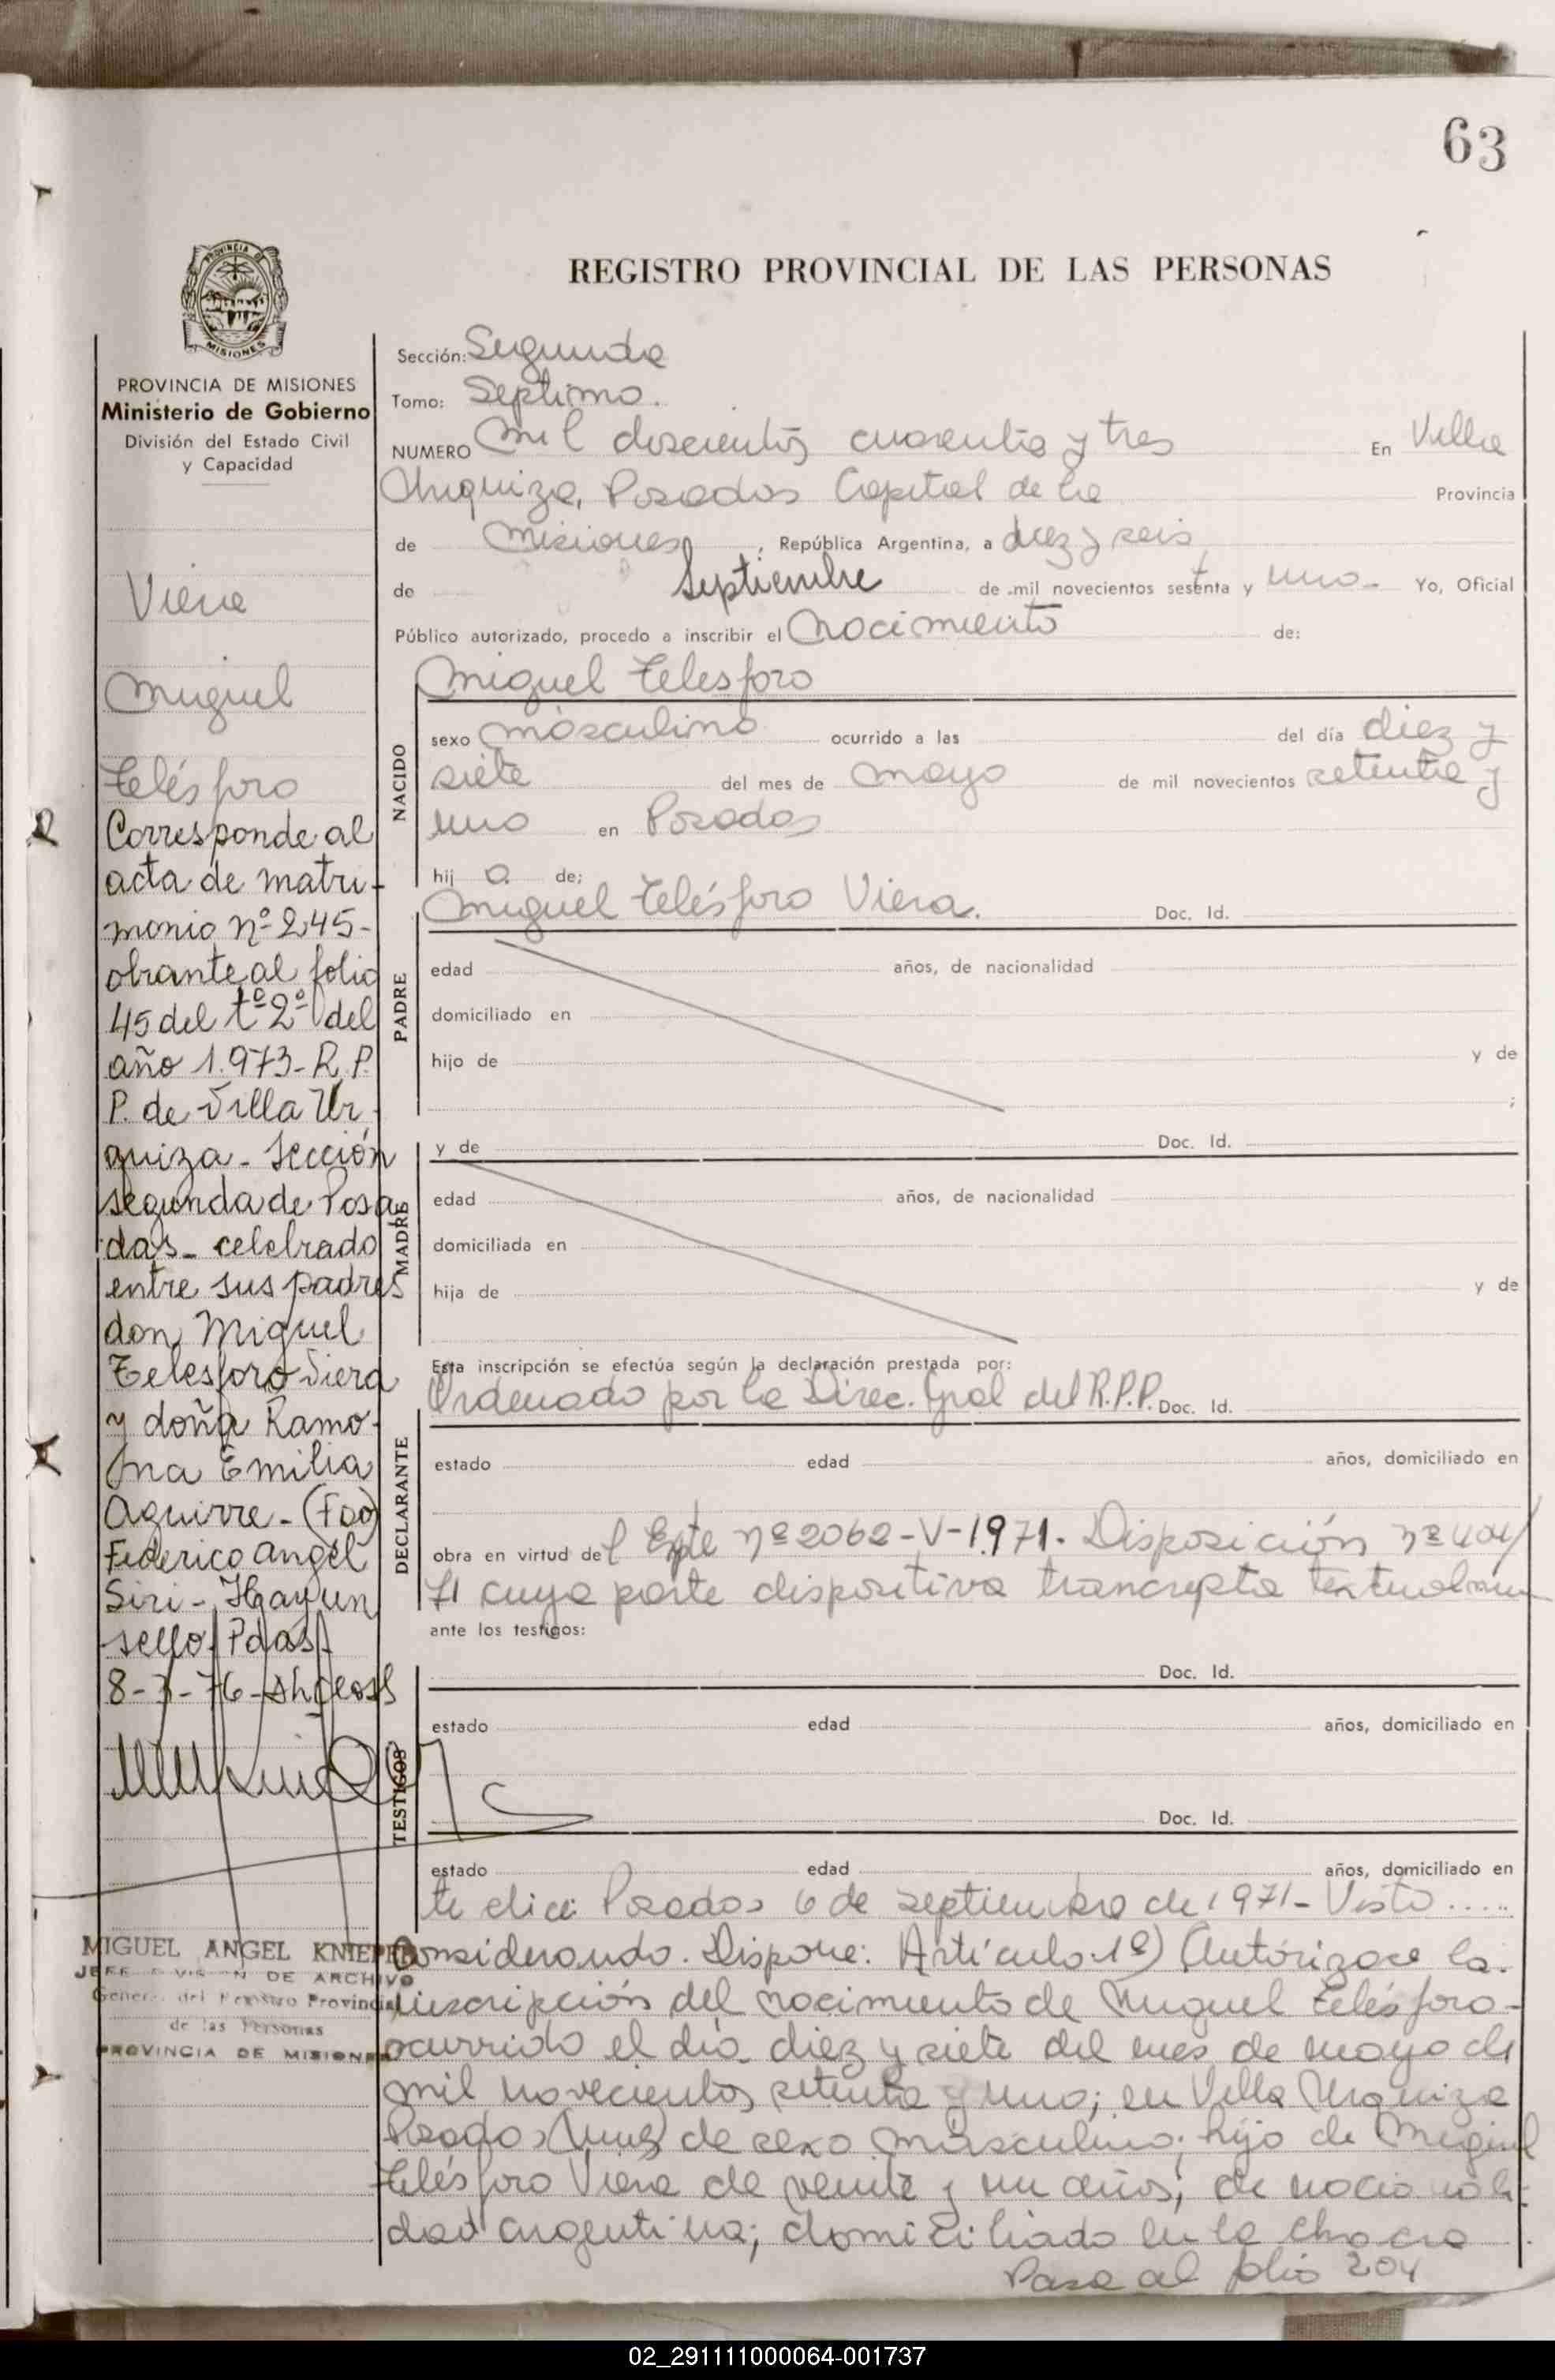 63
REGISTRO PROVINCIAL DE LAS PERSONAS
PROVINCIA DE MISIONES
Ministerio de Gobierno
División del Estado Civil
y Capacidad
Viera
Miguel
Telésforo
Corresponde al
acta de matri-
monio nº 245-
obrante al folio
45 del tº 2º del
año 1.973- R.P.
P. de Villa Ur
quiza - Sección
segunda de Posa
das - celebrado
entre sus padres
don Miguel
Telesforo Viera
y doña Ramo-
na Emilia
Aguirre - (Fdo)
Federico Angel
Siri - Hay un
sello. Pdas.
MIGUEL ANGEL KNIEPER
DE ARCHIVO
General del Registro Provincial
de las Personas
PROVINCIA DE MISIONES
Sección: Segunda
Tomo: Septimo.
NUMERO Mil doscientos cuarenta y tres En Villa
Urquiza, Posadas Capital de la Provincia
de Misiones, República Argentina, a diez y seis
de Septiembre de mil novecientos sesenta y uno - Yo, Oficial
Público autorizado, procedo a inscribir el Nacimiento de:
NACIDO
Miguel Telesforo
sexo masculino ocurrido a las del día diez y
siete del mes de mayo de mil novecientos setenta y
uno en Posadas
hij o de:
PADRE
Miguel Telésforo Viera. Doc. Id.
edad años, de nacionalidad
domiciliado en
hijo de y de
;
MADRE
y de Doc. Id.
edad años, de nacionalidad
domiciliada en
hija de y de
Esta inscripción se efectúa según la declaración prestada por:
DECLARANTE
Ordenado por la Direc. Gral del R.P.P. Doc. Id.
estado edad años, domiciliado en
obra en virtud del Expte nº 2062-V-1971. Disposición nº 404/
71 cuya parte dispositiva trancripta textualmen
ante los testigos:
TESTIGOS
Doc. Id.
estado edad años, domiciliado en
Doc. Id.
estado edad años, domiciliado en
te dice: Posadas 6 de septiembre de 1971 - Visto .....
Considerando. Dispone: Artículo 1º) Autorízace la
inscripción del nacimiento de Miguel Telésforo-
ocurrido el día diez y siete del mes de mayo de
mil novecientos setenta y uno; en Villa Urquiza
Posadas (Mnes) de sexo masculino; hijo de Miguel
Telésforo Viera de veinte y un años; de nacionali-
dad argentina; domiciliado en la chacra
Pasa al folio 204
02_291111000064-001737